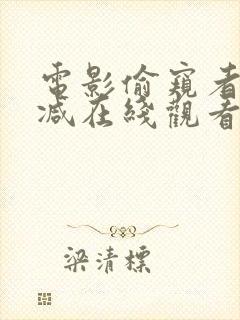 電影偷窺者
減在綫觀看
梁清標